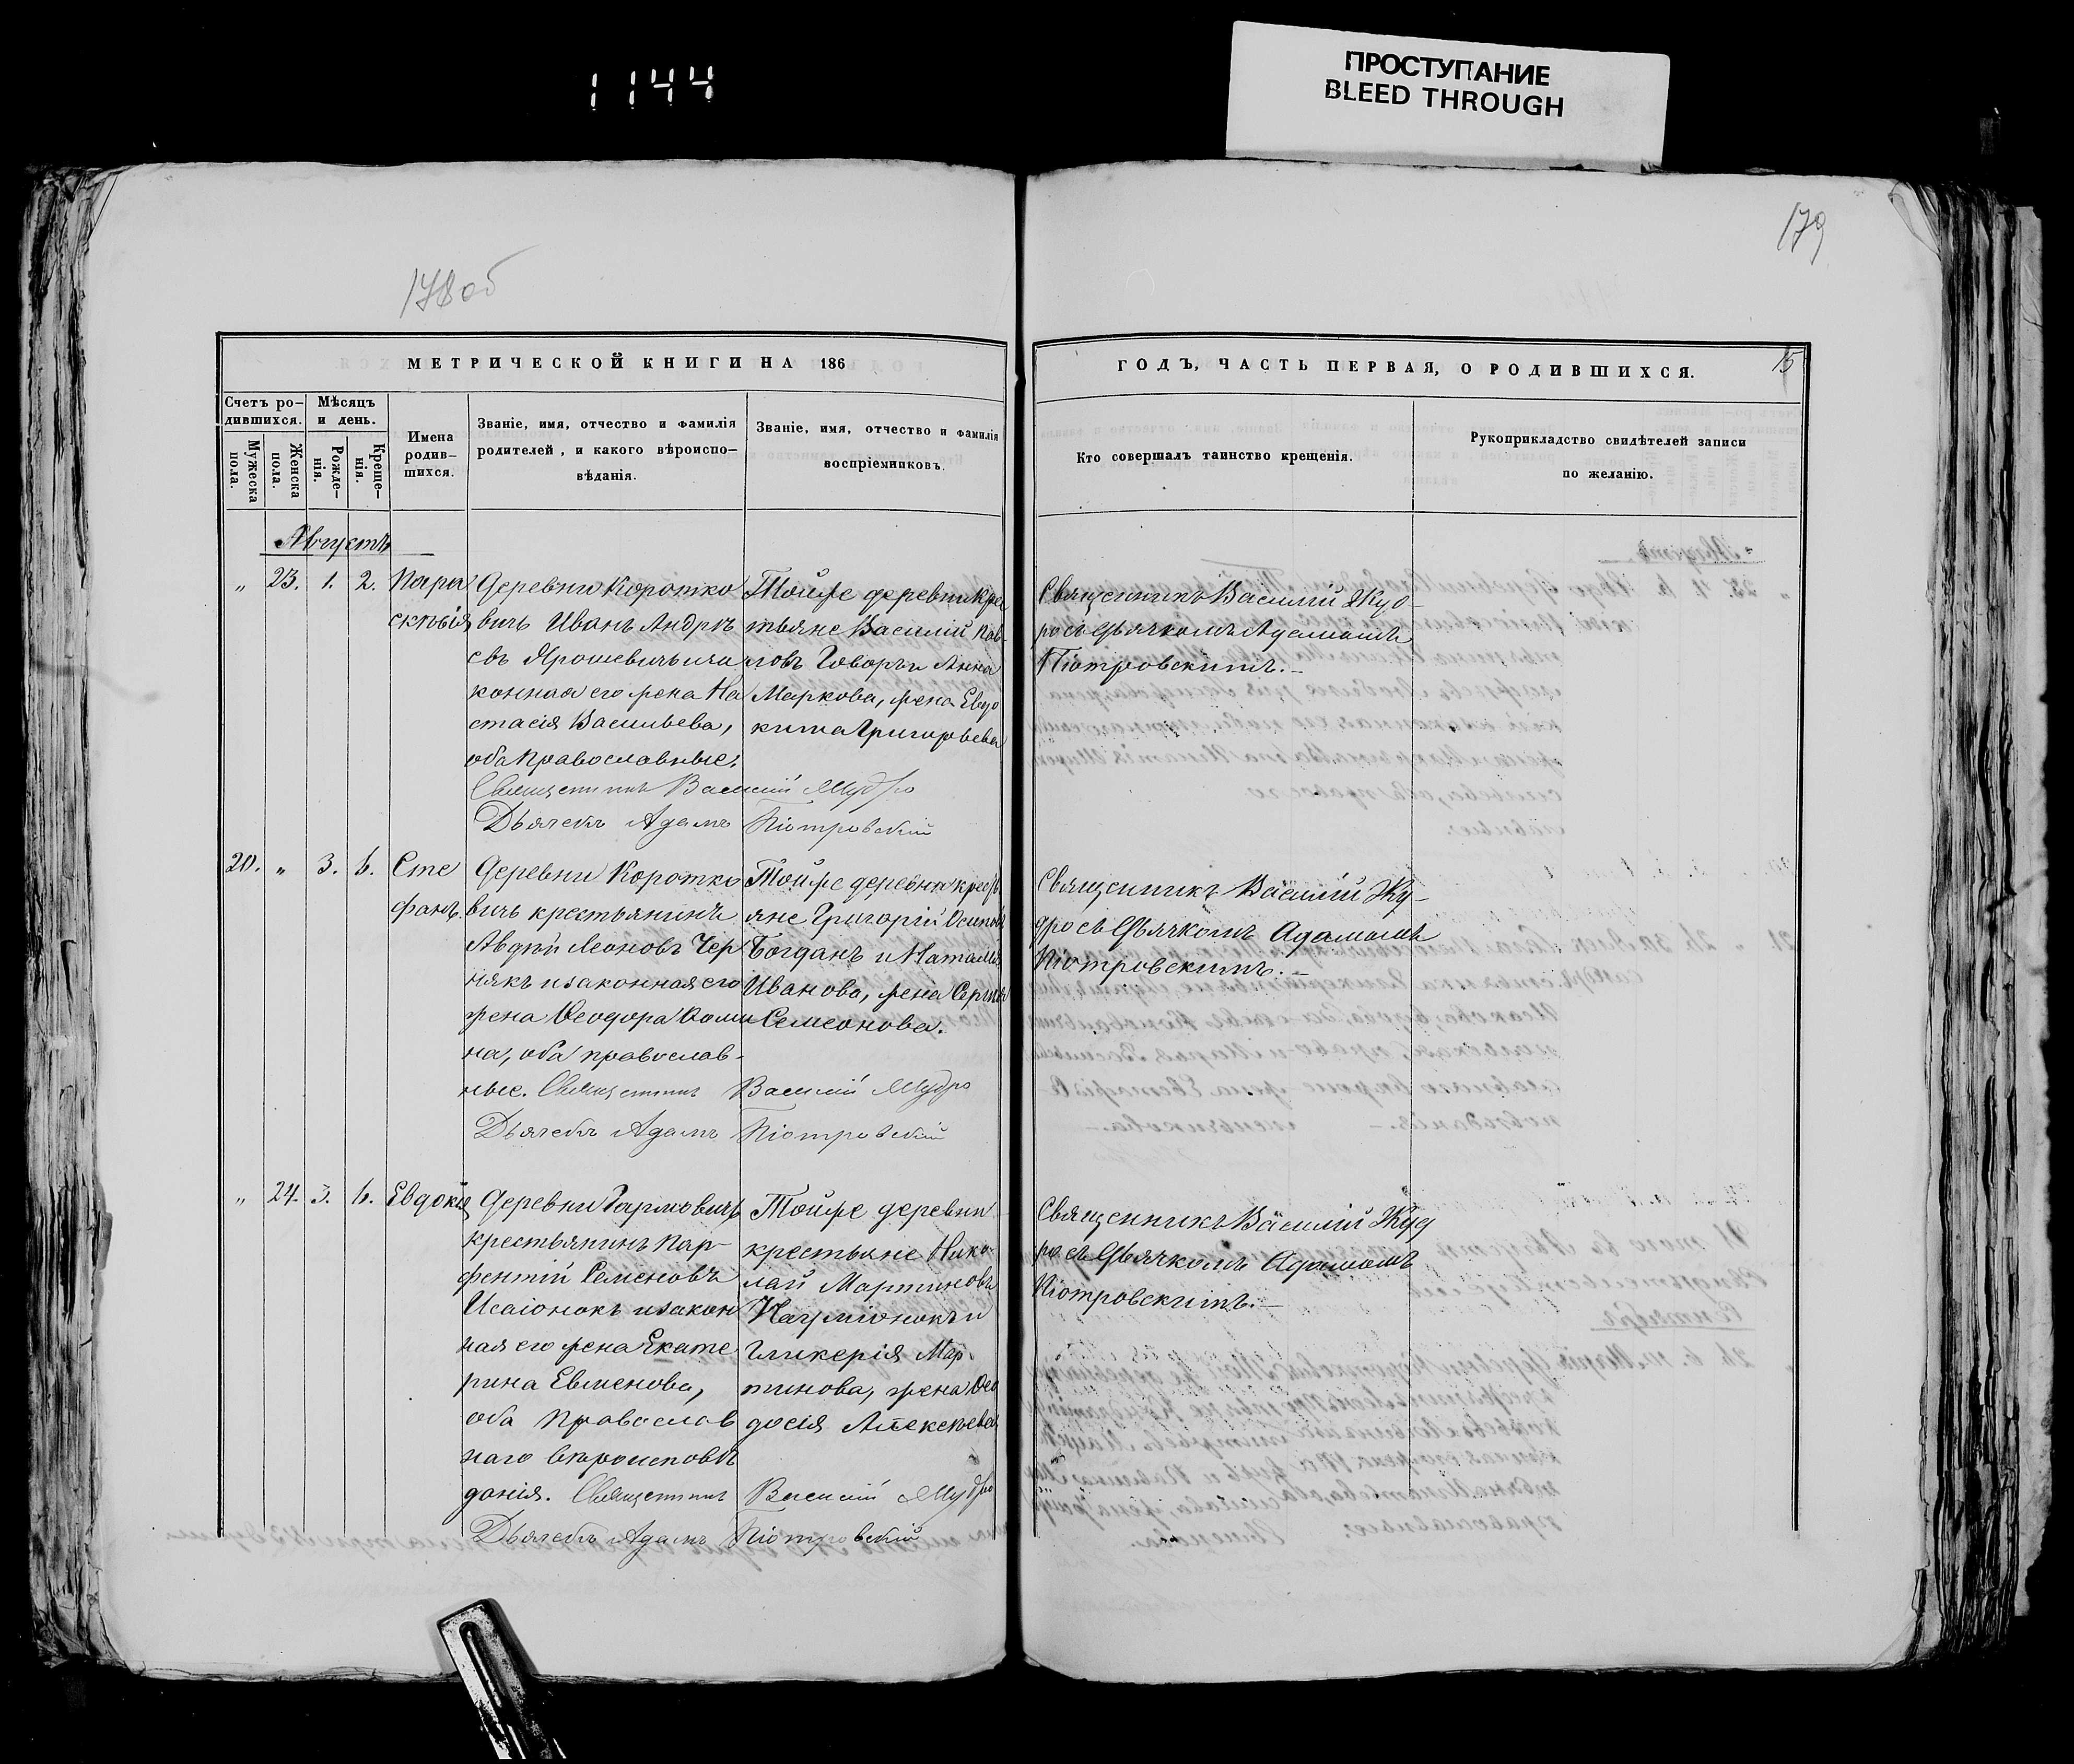 1144
ПРОСТУПАНИЕ
BLEED THROUGH
179
178об
МЕТРИЧЕСКОЙ КНИГИ НА 186
ГОДЪ, ЧАСТЬ ПЕРВАЯ, О РОДИВШИХСЯ.
15
Счетъ ро-
дившихся.
Мужеска
пола.
Женска
пола.
Мѣсяцъ
и день.
Рожде-
нія.
Креще-
нія.
Имена
родив-
шихся.
Званіе, имя, отчество и фамилія
родителей, и какого вѣроиспо-
вѣданія.
Званіе, имя, отчество и фамилія
воспріемниковъ.
Кто совершалъ таинство крещенія.
Рукоприкладство свидѣтелей записи
по желанію.
Августъ
" 23. 1. 2.
Пара
скевія
Деревни Коротко
вичь Иванъ Андре
евъ Ярошевичь и за
конная его жена На
стасія Васильева,
оба православные.
Тойже деревни кре
стьяне Василій Пав
ловъ Говоръ и Анна
Маркова, жена Евдо
кима Григорьева
Священникъ Василій Жуд-
ро съ Дьячкомъ Адамомъ
Піотровскимъ.-
Священникъ Василій Жудро
Дьячекъ Адамъ Піотровскій
20. " 3. 6.
Сте
фанъ.
Деревни Коротко
вичь крестьянинъ
Авдѣй Леоновъ Чер
някъ и законная его
жена Ѳеодора Ѳоми
на, оба православ-
ные. Священникъ Василій Жудро
Дьячекъ Адамъ Піотровскій
Тойже деревни кресть
яне Григорій Осиповъ
Богданъ и Наталія
Иванова, жена Сергѣя
Семеонова.
Священникъ Василій Жу-
дро съ Дьячкомъ Адамомъ
Піотровскимъ.-
" 24. 3. 6.
Евдокія
Деревни Гармовичь
крестьянинъ Пар-
фентій Семеновъ
Исаіонокъ и закон
ная его жена Екате
рина Евменова,
оба православ
наго вѣроисповѣ
данія. Священникъ Василій Жудро
Дьячекъ Адамъ Піотровскій
Тойже деревни
крестьяне Нико-
лай Мартиновъ
Наумёнокъ и
Гликерія Мар
тинова, жена Ѳео
досія Алексѣева
Священникъ Василій Жуд
ро съ Дьячкомъ Адамомъ
Піотровскимъ.-